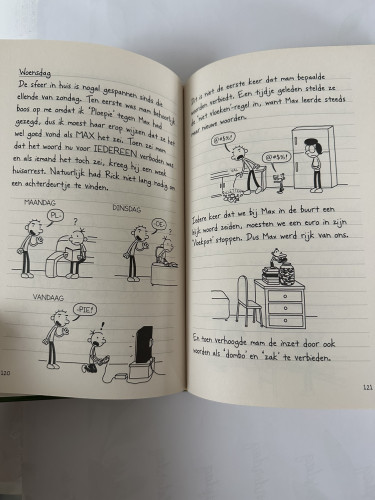 Woensdag
De sfeer in huis is nogal gespannen sinds de
ellende van zondag. Ten eerste was mam behoorlijk
boos op me omdat ik 'Ploepie' tegen Max had
gezegd, dus ik moest haar erop wijzen dat ze het
wel goed vond als MAX het zei. Toen zei mam
dat het woord nu voor IEDEREEN verboden was
en als iemand het toch zei, kreeg hij een week
huisarrest. Natuurlijk had Rick niet lang nodig om
een achterdeurtje te vinden.
MAANDAG
PL-
?
DINSDAG
-OE-
?
VANDAAG
-PIE!
!
120
Dit is niet de eerste keer dat mam bepaalde
woorden verbiedt. Een tijdje geleden stelde ze
de 'niet vloeken'-regel in, want Max leerde steeds
maar nieuwe woorden.
@*&%!
@*&%!
Iedere keer dat we bij Max in de buurt een
lelijk woord zeiden, moesten we een euro in zijn
'Vloekpot' stoppen. Dus Max werd rijk van ons.
En toen verhoogde mam de inzet door ook
woorden als 'dombo' en 'zak' te verbieden.
121